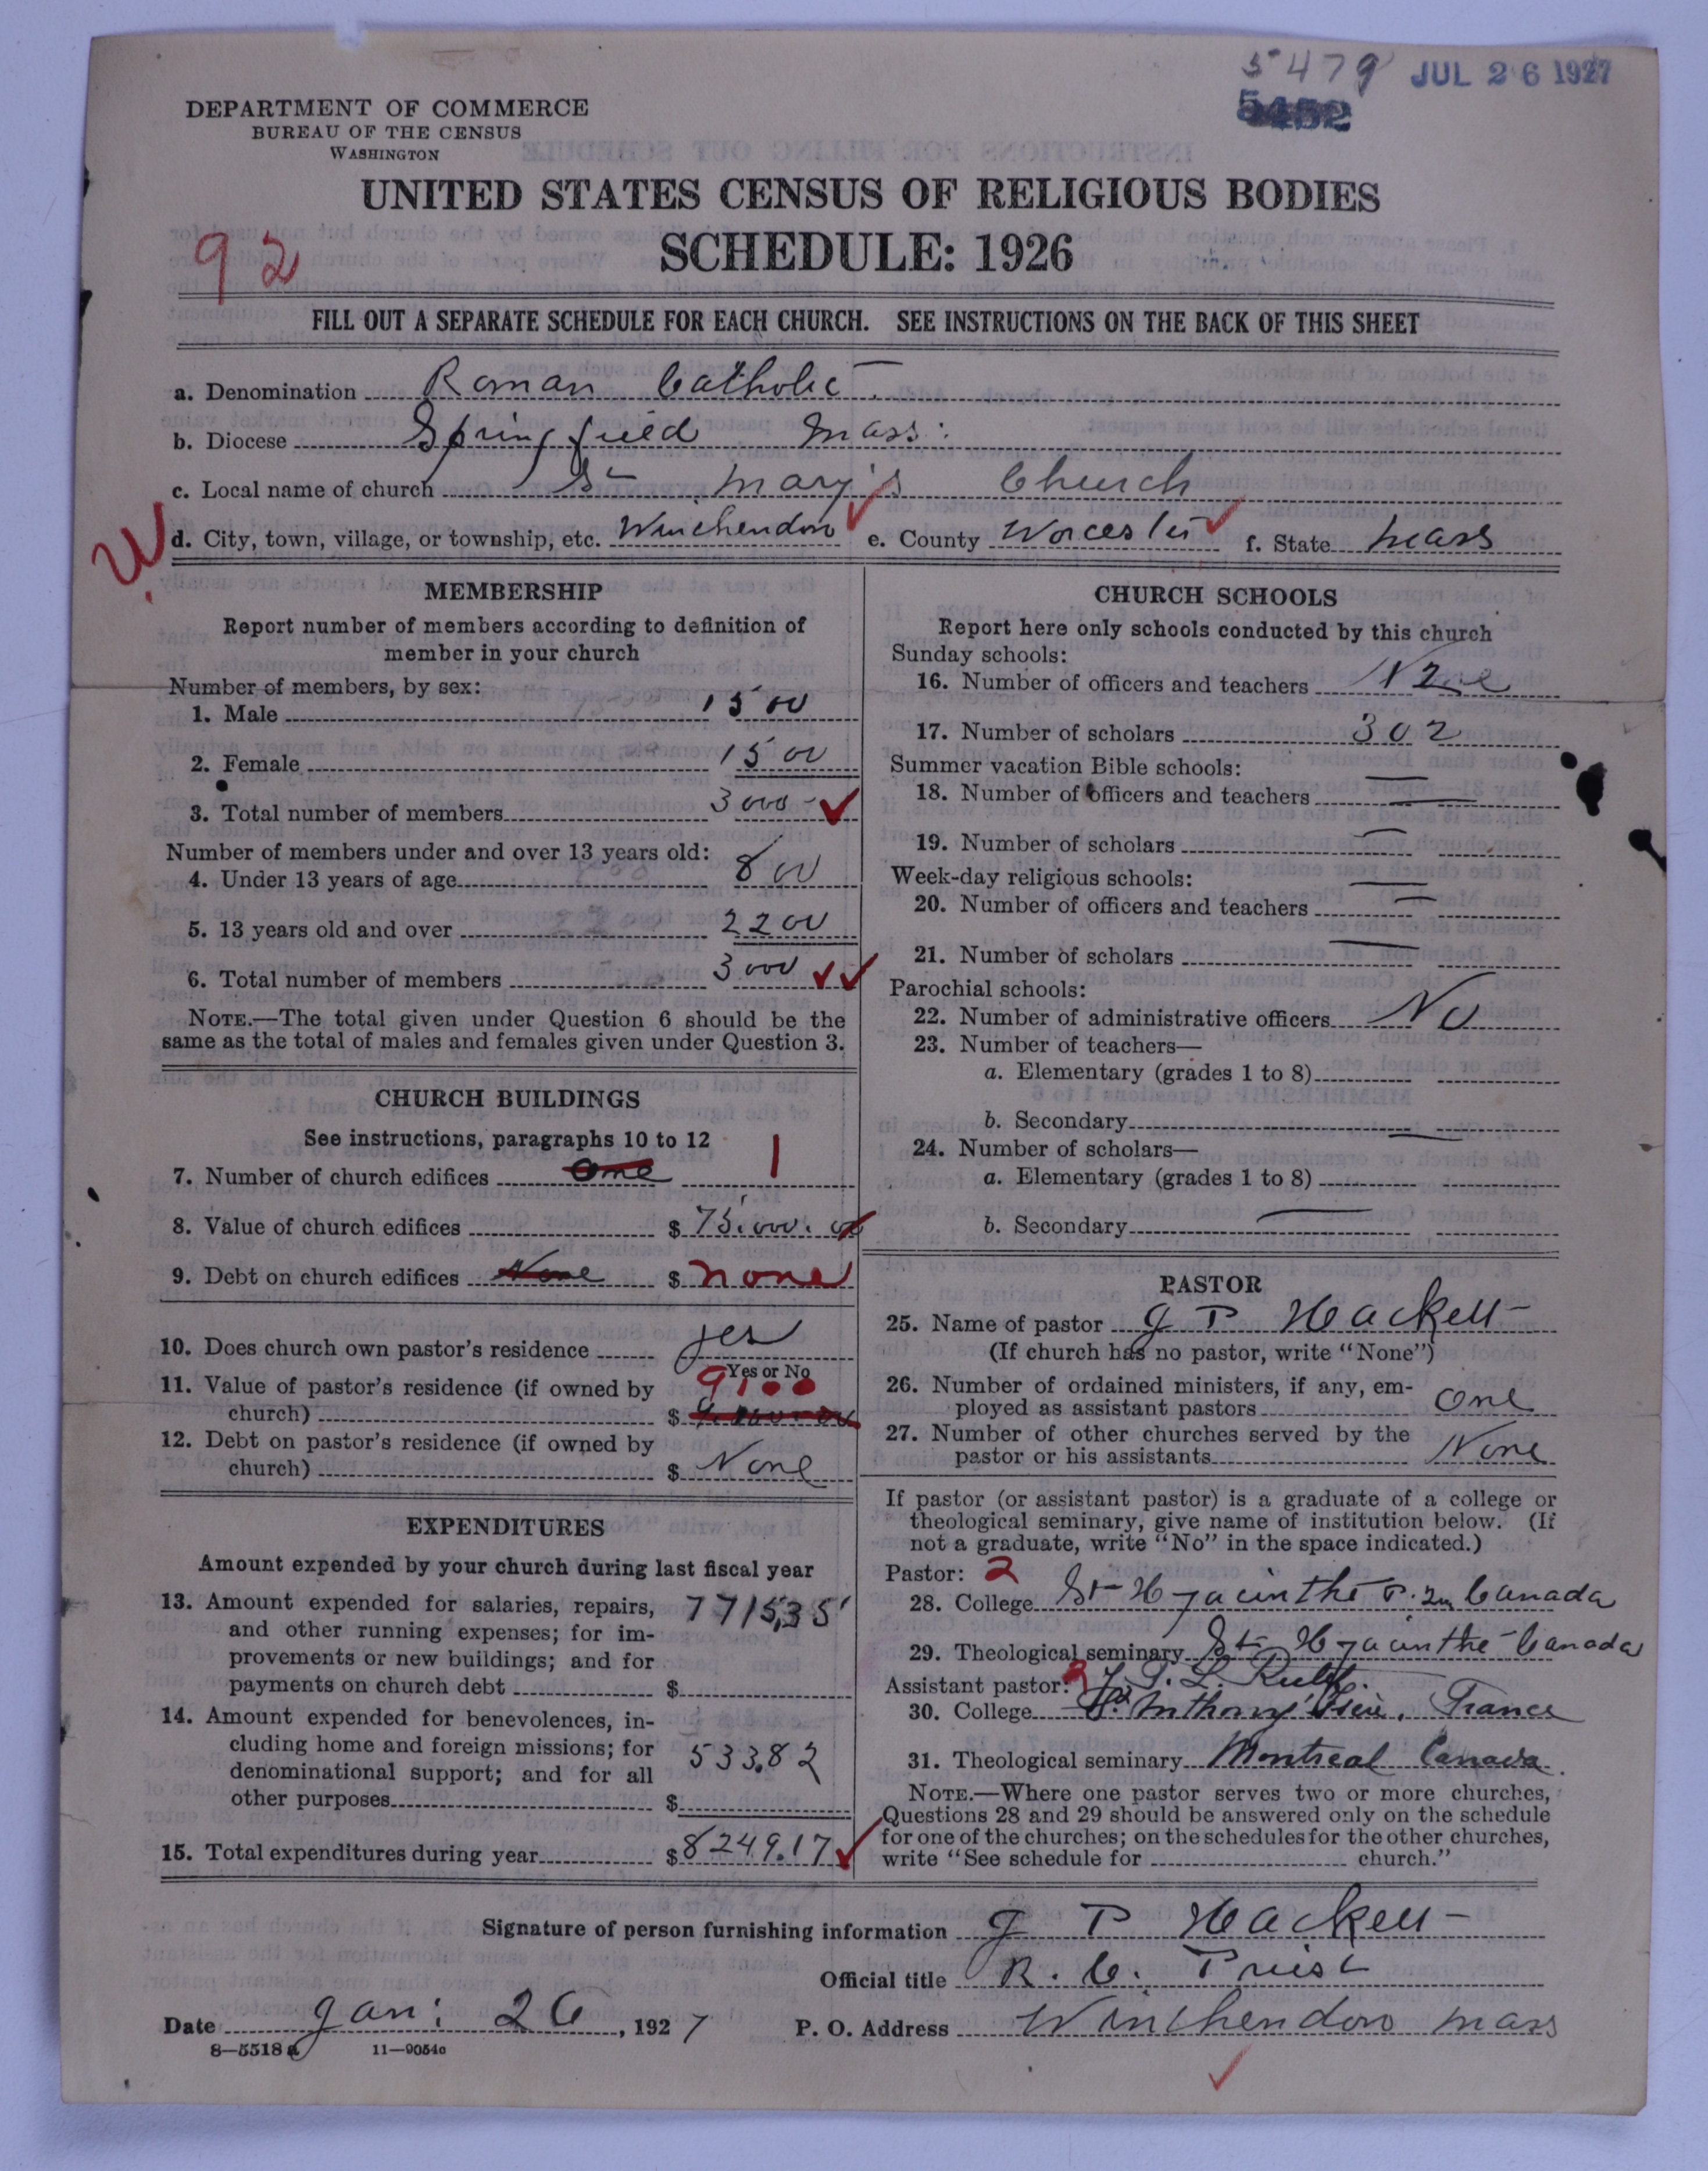 5479 JUL 26 1927
5452
DEPARTMENT OF COMMERCE
BUREAU OF THE CENSUS
WASHINGTON
UNITED STATES CENSUS OF RELIGIOUS BODIES
92
SCHEDULE: 1926
FILL OUT A SEPARATE SCHEDULE FOR EACH CHURCH. SEE INSTRUCTIONS ON THE BACK OF THIS SHEET
a. Denomination Roman Catholic
b. Diocese Springfield Mass:
c. Local name of church St Mary's Church
d. City, town, village, or township, etc. Winchendon e. County Worcester f. State Mass
MEMBERSHIP
Report number of members according to definition of
member in your church
Number of members, by sex:
1. Male 1500
2. Female 1500
3. Total number of members 3000
Number of members under and over 13 years old:
4. Under 13 years of age 800
5. 13 years old and over 2200
6. Total number of members 3000
NOTE.—The total given under Question 6 should be the
same as the total of males and females given under Question 3.
CHURCH BUILDINGS
See instructions, paragraphs 10 to 12
7. Number of church edifices One 1
8. Value of church edifices $ 75,000.00
9. Debt on church edifices None $ none
10. Does church own pastor's residence yes
Yes or No
11. Value of pastor's residence (if owned by 9100
church) $
12. Debt on pastor's residence (if owned by
church) $ None
EXPENDITURES
Amount expended by your church during last fiscal year
13. Amount expended for salaries, repairs, 7715,35
and other running expenses; for im-
provements or new buildings; and for
payments on church debt $
14. Amount expended for benevolences, in-
cluding home and foreign missions; for 533.82
denominational support; and for all
other purposes $
15. Total expenditures during year $8249.17
CHURCH SCHOOLS
Report here only schools conducted by this church
Sunday schools:
16. Number of officers and teachers
17. Number of scholars 302
Summer vacation Bible schools:
18. Number of officers and teachers —
19. Number of scholars —
Week-day religious schools:
20. Number of officers and teachers —
21. Number of scholars —
Parochial schools:
22. Number of administrative officers No
23. Number of teachers—
a. Elementary (grades 1 to 8)
b. Secondary
24. Number of scholars—
a. Elementary (grades 1 to 8)
b. Secondary
PASTOR
25. Name of pastor J P Hackett
(If church has no pastor, write "None")
26. Number of ordained ministers, if any, em-
ployed as assistant pastors One
27. Number of other churches served by the
pastor or his assistants None
If pastor (or assistant pastor) is a graduate of a college or
theological seminary, give name of institution below. (If
not a graduate, write "No" in the space indicated.)
Pastor: 2
28. College St Hyacinthe P. Q. Canada
29. Theological seminary St Hyacinthe Canada
Assistant pastor:
30. College St. Anthony France
31. Theological seminary Montreal Canada.
NOTE.—Where one pastor serves two or more churches,
Questions 28 and 29 should be answered only on the schedule
for one of the churches; on the schedules for the other churches,
write "See schedule for church."
Signature of person furnishing information J P Hackett
Official title R. C. Priest
Date Jan: 26, 1927 P. O. Address Winchendon Mass
8—5518a 11—9054a